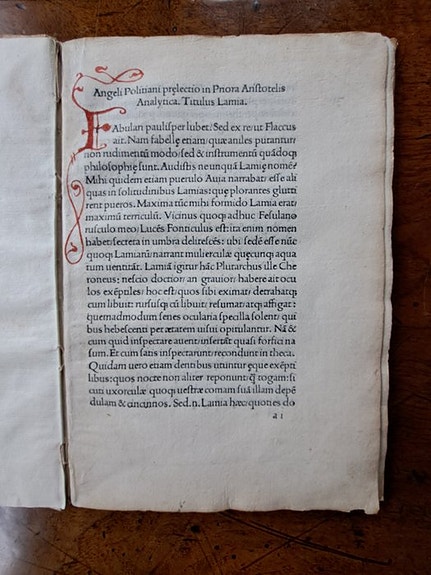 Angeli Politiani pręlectio in Priora Aristotelis
Analytica. Titulus Lamia.
FAbulari paulisper lubet. Sed ex re, ut Flaccus
ait. Nam fabellę etiam, quę aniles putantur,
non rudimentũ modo, sed & instrumentũ quãdoq;
philosophię sunt. Audistis ne unquã Lamię nomẽ?
Mihi quidem etiam puerulo Auia narrabat, esse ali
quas in solitudinibus Lamias: quę plorantes glutti
rent pueros. Maxima tũc mihi formido Lamia erat,
maximũ terriculũ. Vicinus quoq; adhuc Fesulano
rusculo meo, Lucẽs Fonticulus est, ita enim nomen
habet, secreta in umbra delitescẽs: ubi sedẽ esse nũc
quoq; Lamiarũ narrant mulierculę quęcunq; aqua
tum uentitãt. Lamiã igitur hãc Plutarchus ille Che
roneus: nescio doctior, an grauior, habere ait ocu
los exẽptiles: hoc est, quos sibi eximat, detrahatq;
cum libuit: rursusq; cũ libuit, resumat, atq; affigat:
quemadmodum senes ocularia specilla solent, qui
bus hebescenti per ætatem uisui opitulantur. Nã &
cum quid inspectare auent, insertãt quasi forfici na
sum. Et cum satis inspectarunt, recondunt in theca.
Quidam uero etiam dentibus utuntur ęque exẽpti
libus: quos nocte non aliter reponunt, q̃ togam: si
cuti uxorculæ quoq; uestræ comam suã illam depẽ
dulam & cincinnos. Sed .n. Lamia hæc quoties do
a i